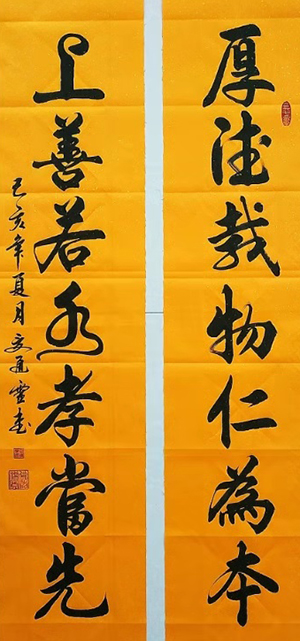 厚德载物仁為本
上善若水孝當先
己亥年夏月安通雲書